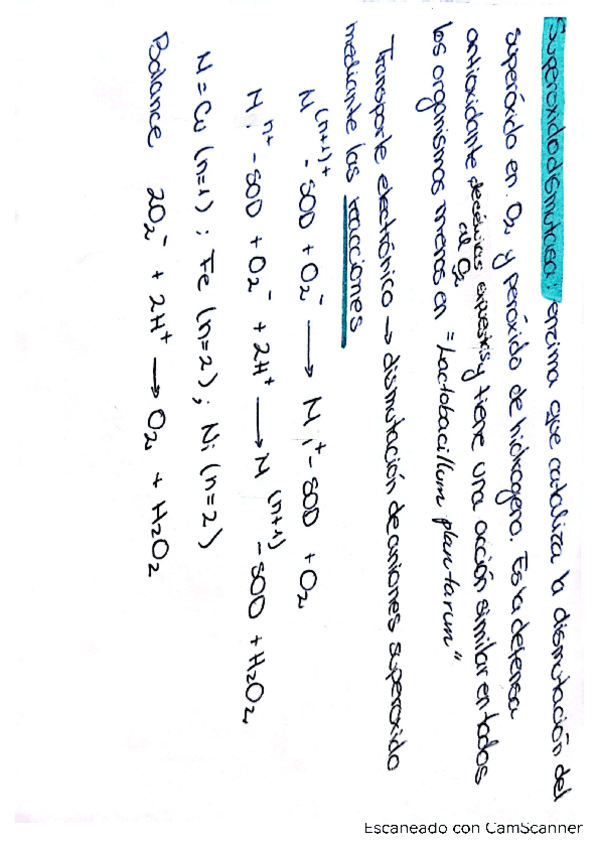 Superoxidodismutasa: enzima que cataliza la dismutación del
superóxido en O₂ y peróxido de hidrógeno. Es la defensa
antioxidante de células expuestas al O₂ y tiene una acción similar en todos
los organismos menos en "Lactobacillum plantarum"
Transporte electrónico → dismutación de aniones superoxido
mediante las reacciones
M⁽ⁿ⁺¹⁾⁺ - SOD + O₂⁻ → M⁺ - SOD + O₂
Mⁿ⁺ - SOD + O₂⁻ + 2H⁺ → M⁽ⁿ⁺¹⁾ - SOD + H₂O₂
M = Cu (n=1) ; Fe (n=2) ; Ni (n=2)
Balance 2O₂⁻ + 2H⁺ → O₂ + H₂O₂
Escaneado con CamScanner